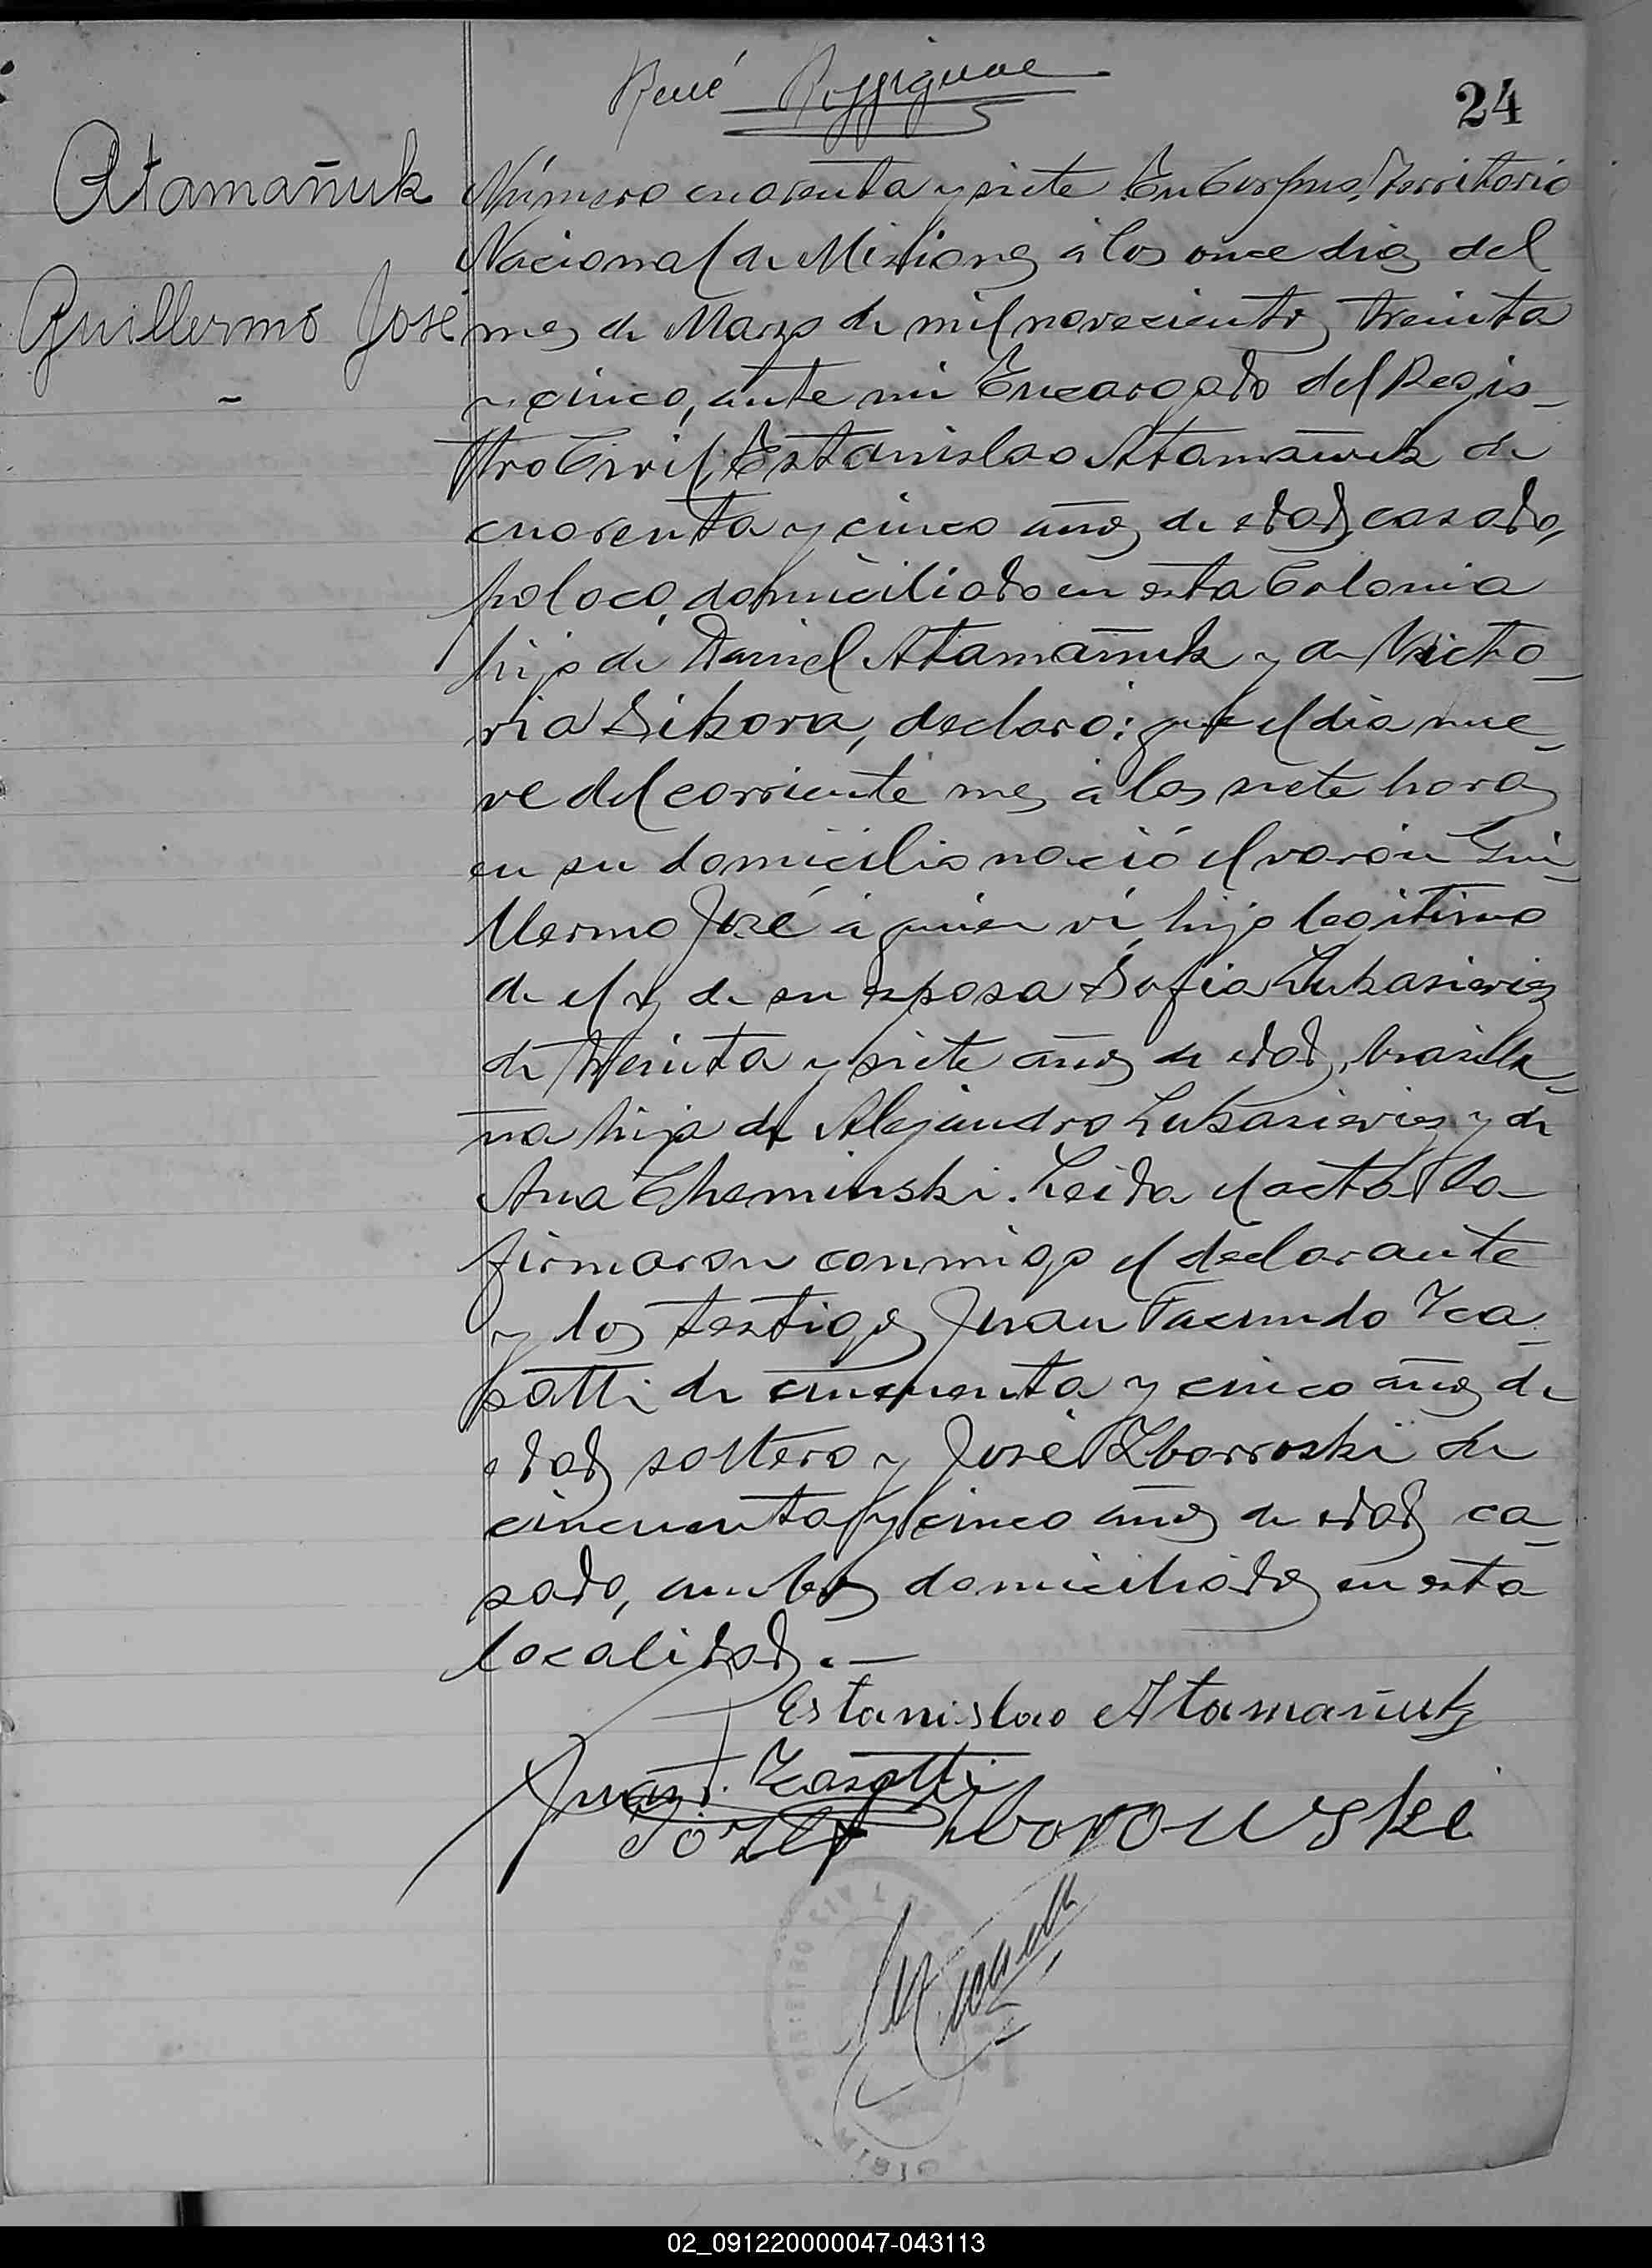 René
24
Atamañuk
Guillermo José
Número cuarenta y siete. En Corpus, Territorio
Nacional de Misiones a los once dias del
mes de Marzo de mil novecientos treinta
y cinco, ante mi Encargado del Regis-
tro Civil, Estanislao Atamañuk de
cuarenta y cinco años de edad, casado,
polaco, domiciliado en esta Colonia
hijo de Daniel Atamañuk y de Victo-
ria Sikora, declaró: que el dia nue-
ve del corriente mes á las siete horas
en su domicilio nació el varón Gui-
llermo José á quien ví, hijo legitimo
de el y de su esposa Sofia Lukasieviez
de treinta y siete años de edad, brasile-
na hija de Alejandro Lukasieviez y de
Ana Cheminski. Leida el acta la
firmaron conmigo el declarante
y los testigos Juan Facundo
de cincuenta y cinco años de
edad soltero y José Zborroski de
cincuenta y cinco años de edad ca-
sado, ambos domiciliados en esta
localidad.—
Estanislao Atamañuk
Juan F.
Józef Zborowski
02_091220000047-043113